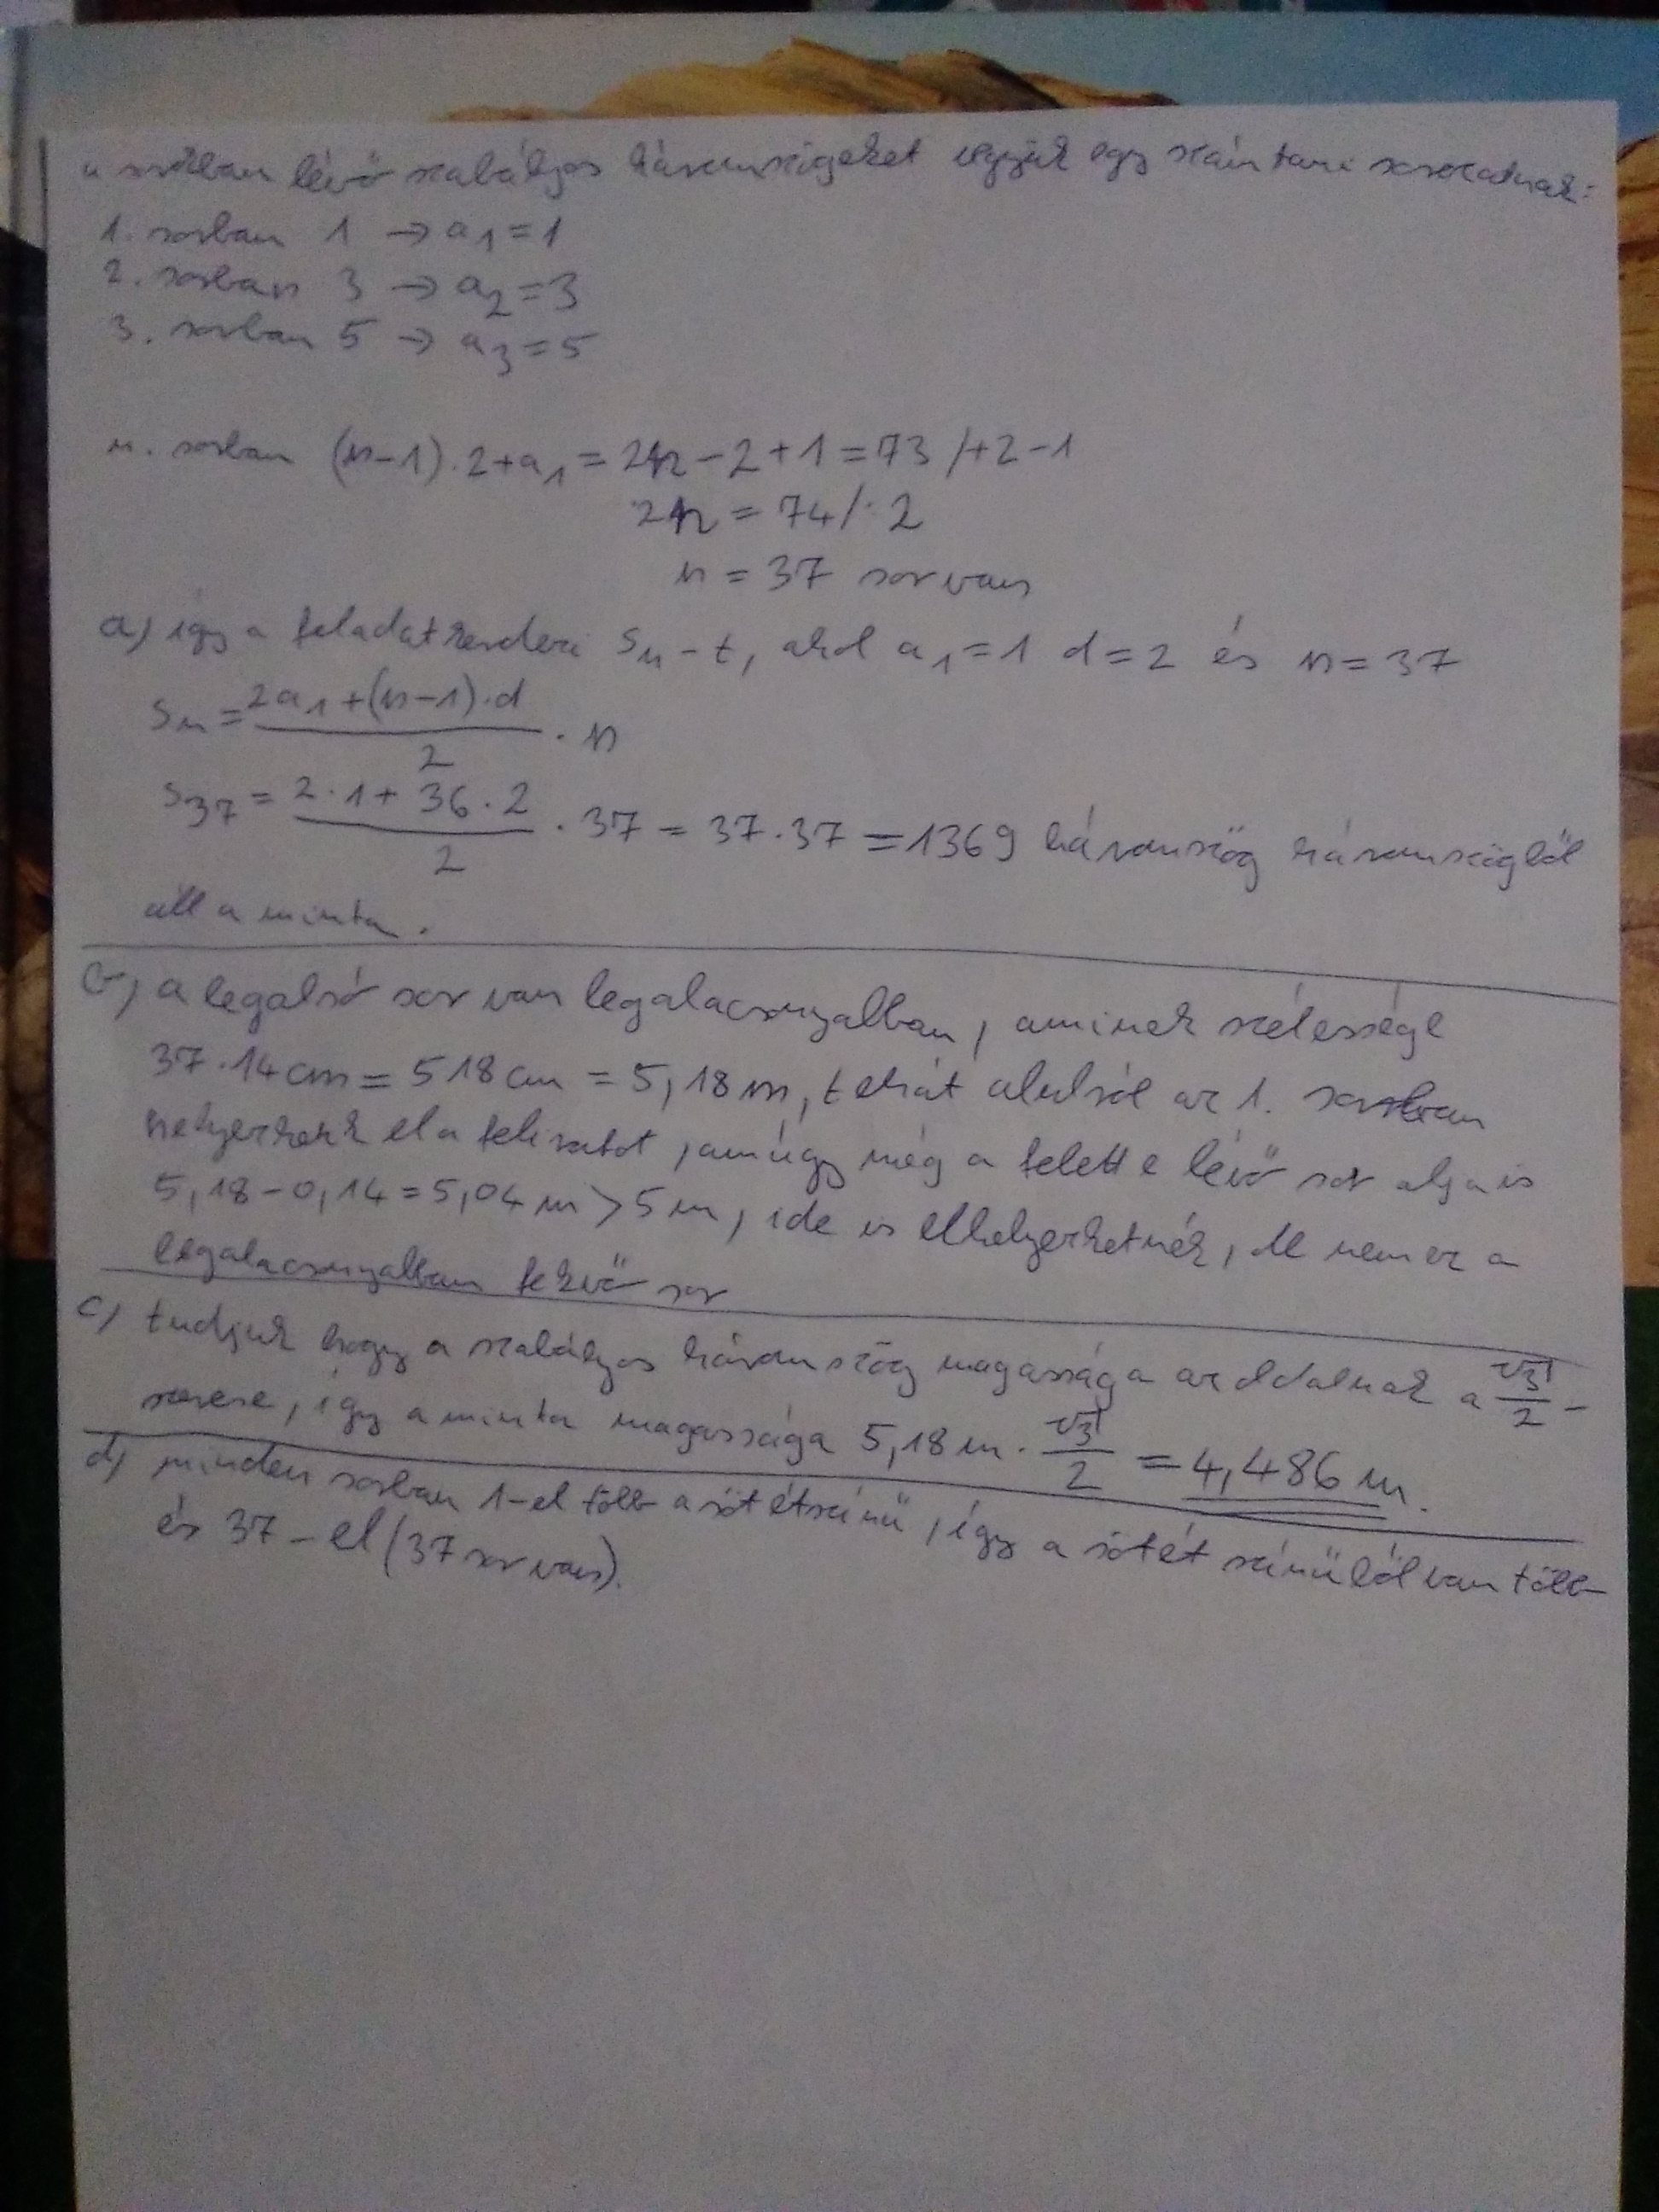 a sorban lévő szabályos háromszögeket vegyük egy számtani sorozatnak:
1. sorban 1 → a₁=1
2. sorban 3 → a₂=3
3. sorban 5 → a₃=5
n. sorban (n-1)·2+a₁=2n-2+1=73 /+2-1
2n=74/:2
n=37 sor van
a) így a feladat kérdezi Sₙ-t, ahol a₁=1 d=2 és n=37
Sₙ=(2a₁+(n-1)·d)/2·n
S₃₇=(2·1+36·2)/2·37=37·37=1369 háromszög háromszögből
áll a minta.
b) a legalsó sor van legalacsonyabban, aminek szélessége
37·14cm=518cm=5,18m, tehát alulról az 1. sorban
helyezhetik el a feliratot, amúgy még a felette lévő sor alja is
5,18-0,14=5,04m>5m, ide is elhelyezhetnék, de nem ez a
legalacsonyabban fekvő sor
c) tudjuk hogy a szabályos háromszög magassága az oldalnak a √3/2-
szerese, így a minta magassága 5,18m·√3/2=4,486m.
d) minden sorban 1-el több a sötétszínű, így a sötét színűből van több
és 37-el (37 sor van).